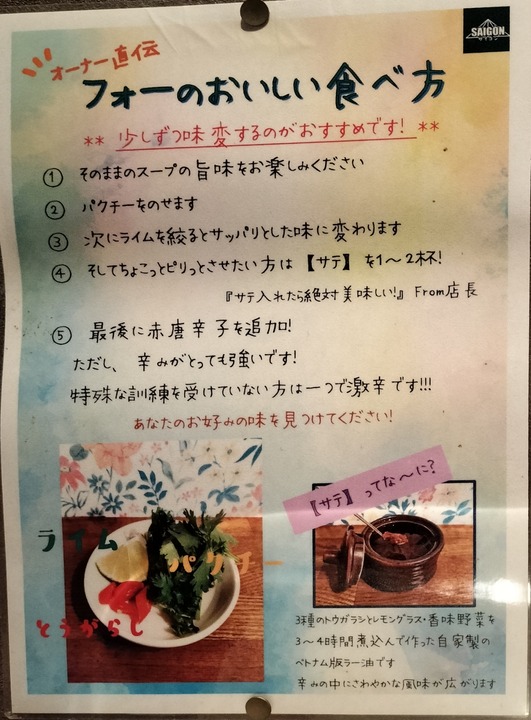 SAIGON
サイゴン
オーナー直伝
フォーのおいしい食べ方
** 少しずつ味変するのがおすすめです! **
① そのままのスープの旨味をお楽しみください
② パクチーをのせます
③ 次にライムを絞るとサッパリとした味に変わります
④ そしてちょこっとピリっとさせたい方は 【サテ】 を1〜2杯!
『サテ入れたら絶対美味しい!』 From店長
⑤ 最後に赤唐辛子を追加!
ただし、 辛みがとっても強いです!
特殊な訓練を受けていない方は一つで激辛です!!!
あなたのお好みの味を見つけてください!
【サテ】ってな〜に?
ライム
パクチー
とうがらし
3種のトウガラシとレモングラス・香味野菜を
3〜4時間煮込んで作った自家製の
ベトナム版ラー油です
辛みの中にさわやかな風味が広がります